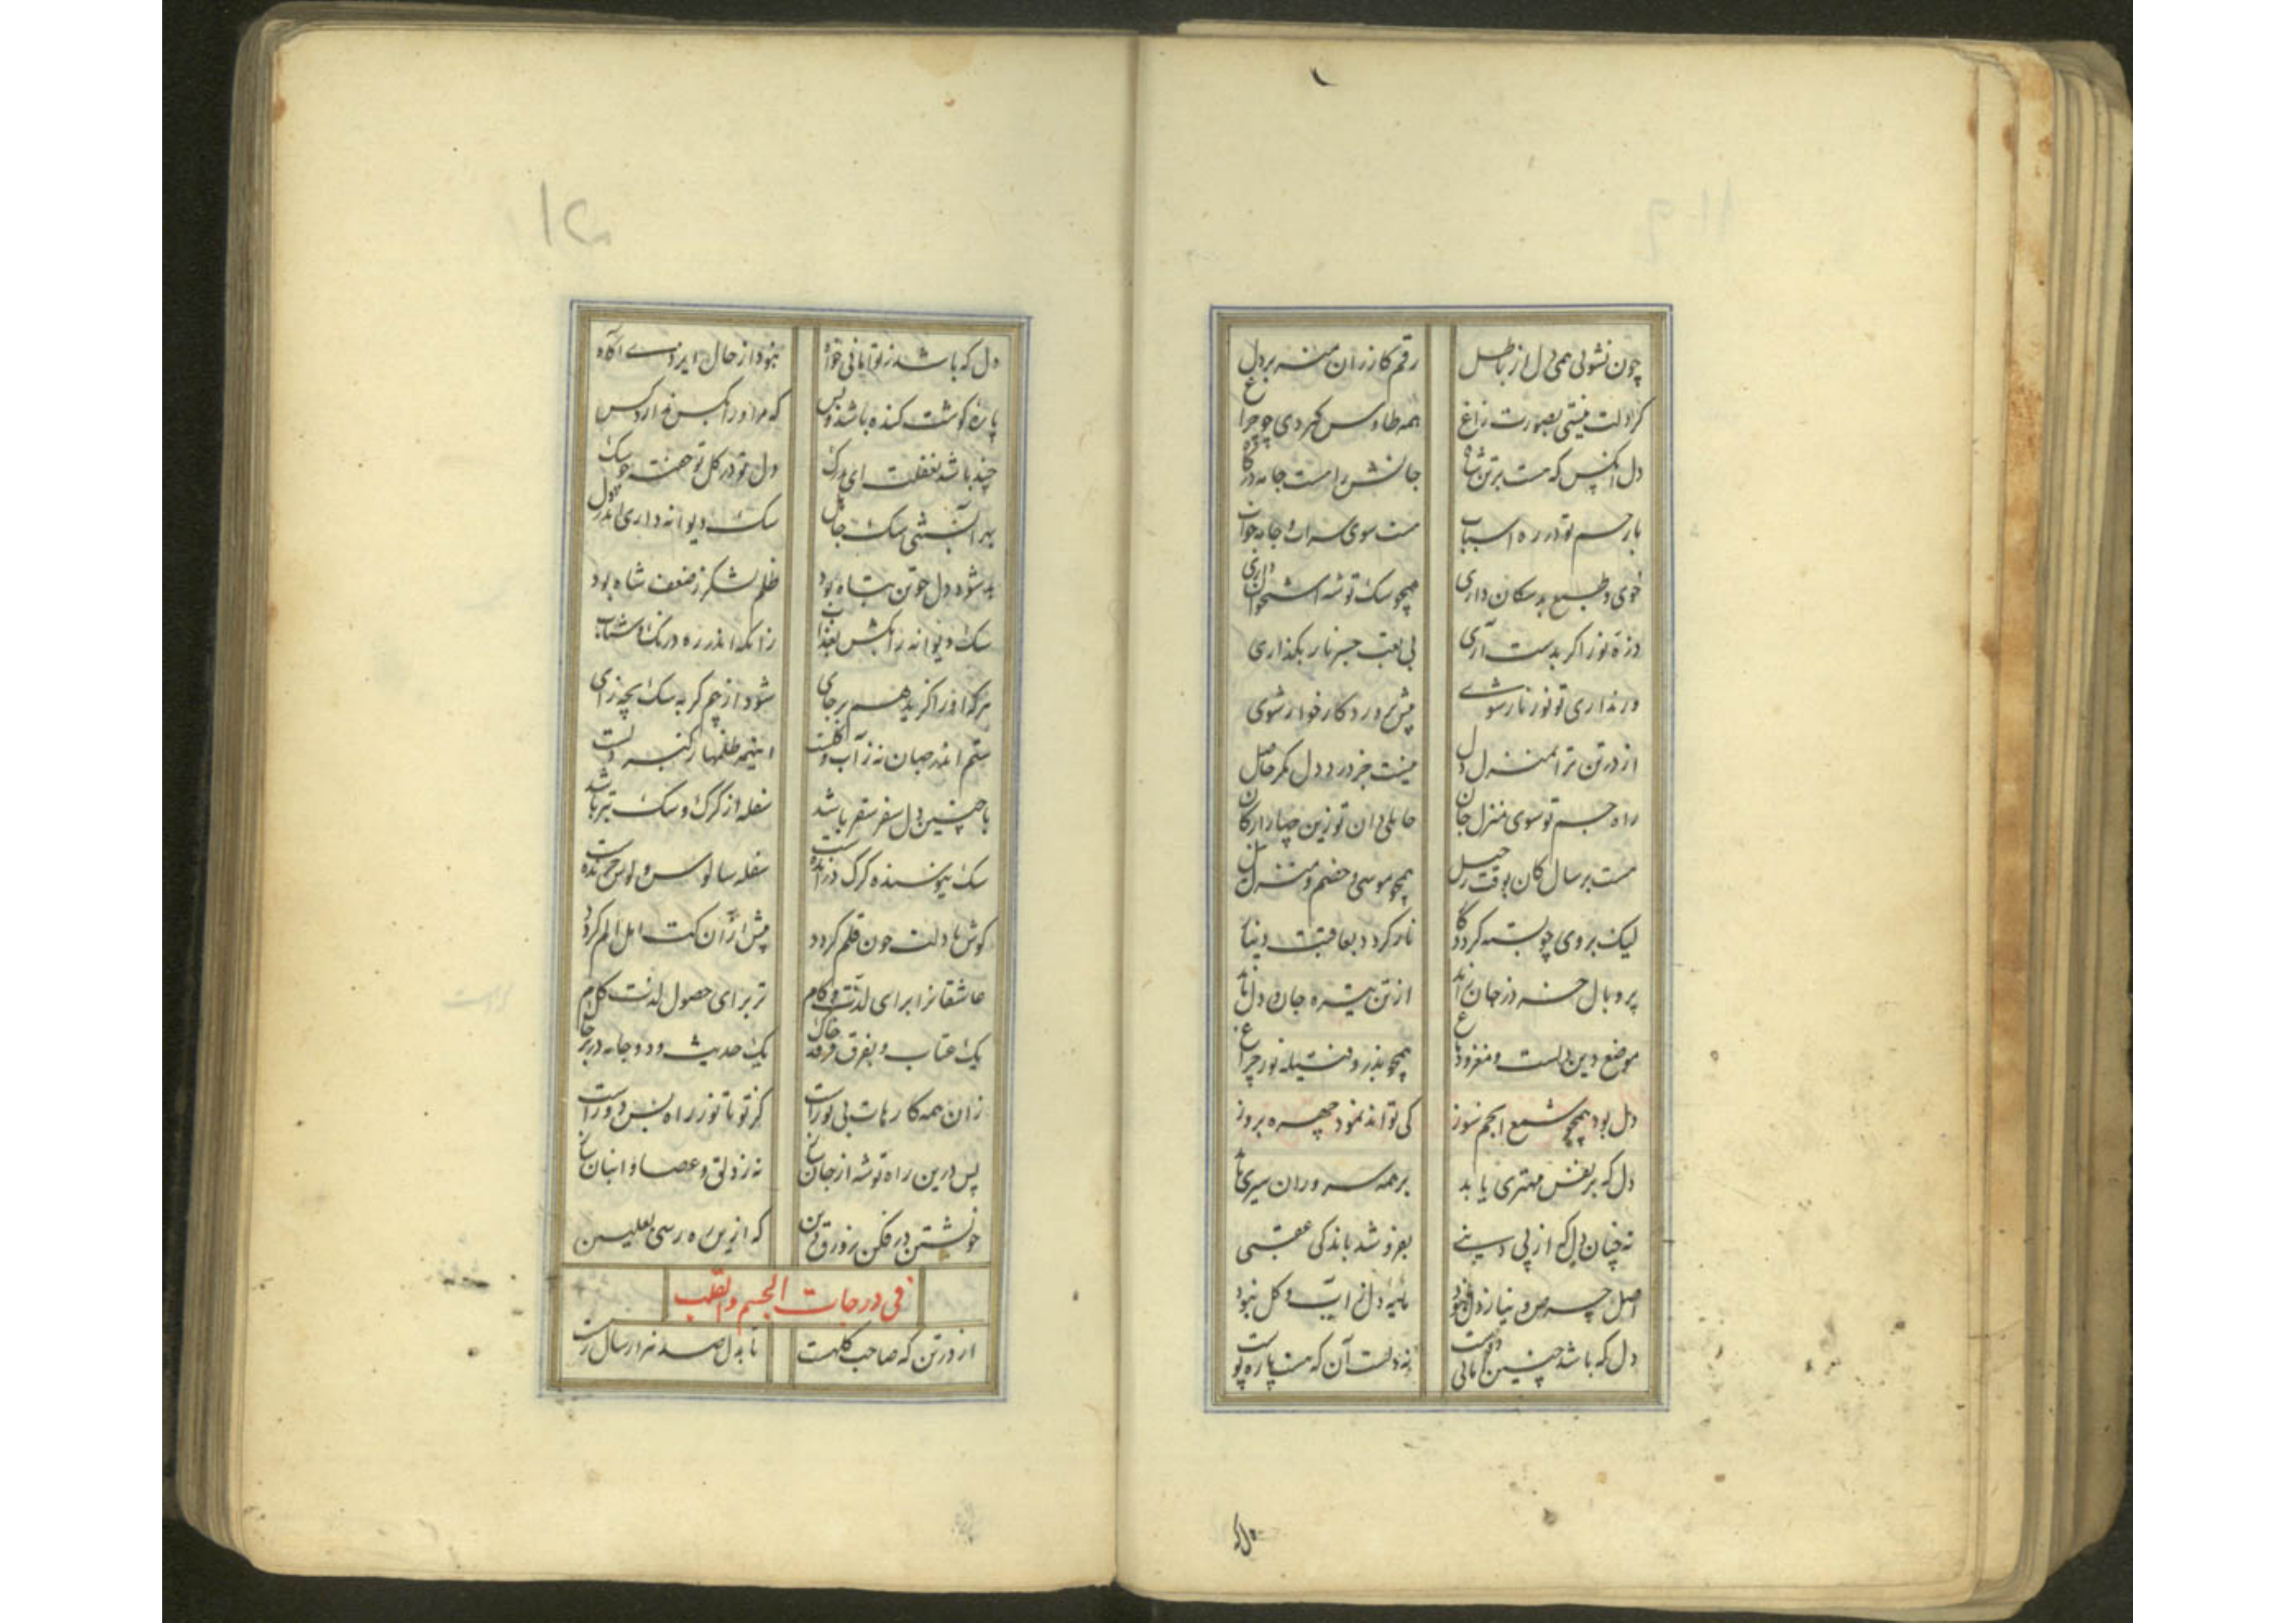 چون نشوئی همی دل از باطل
رقم کازران منه بر دل
گر دلت نیستی بصورت زاغ
همه طاوس کردی چو چراغ
دل آنکس که هست بر تن شاه
جانش است جامه درگاه
بار جسم تو در ره اسباب
هست سوی سراب و جامه خواب
خوی و طبع بد سکان داری
همچو سک توشه استخوان داری
ذره نور اگر بدست آری
بی تعب جسر نار بگذاری
ور نداری تو نور نار شوی
پیش مرد کار خوار شوی
از در تن ترا بمنزل دل
نیست جز درد دل مکر حاصل
راه جسم تو سوی منزل جان
حایلی دان تو زین چهار ارکان
هست بر سالکان بوقت رحیل
همچو موسی و خضم و منزل نیل
لیک بروی چو بسته کردد کا
پر و بال خسرو ز جان آمد
از تن تیره جان و دل نامد
موضع دین دلست و مغز و دماغ
همچو بذر و فتیله نور چراغ
دل بود همچو شمع انجم سوز
کی تواند نمود چهره بروز
دل که بر نفس مهتری یابد
بر همه سروران سری یابد
نه چنان دل که از پی دینی
بفروشد باندکی عقبی
اصل حرص و نیاز دل نبود
مایه دل ز آب و گل نبود
دل که باشد چنین
نه دلست آن که هست پاره پوست
دل که
دل که باشد ز تو
نبود از حال ایزدی آگاه
پاره گوشت کنده باشد و بس
که مر او را بکس ندارد کس
چند باشد بغفلت ای مردک
دل تو در کل تو خفته چو سک
بهر آتشی سک
سک دیوانه داری اندر دل
بد شود دل چو تن تباه بود
ظلم لشکر ز ضعف شاه بود
سک دیوانه را بکش بعذاب
زانکه اندر ره درنگ و شتاب
هر که او را گزید هم بر جای
شود از جرم گر به سک بچه زای
ستم اندر جهان نه ز آب و گلست
اینهمه ظلمها ز کنه دلست
با چنین دل سفر سقر باشد
سفله از گرگ و سک بتر باشد
سک نیوشنده گرگ درنده است
سفله سالوس و لوس خرمنده است
گوش با دلت چون قلم گردد
پیش از آن کت امل الم گردد
عاشقانرا برای لذت و کام
تر برای حصول لذت کام
یک عتاب و بفرق فرقد خاک
یک حدیث و دو جامه در بر چاک
زان همه کارهات بی نور است
کز تو تا نور راه بس دور است
پس درین راه توشه از جان ساز
نه ز دلق و عصا و انبان ساز
خویشتن در فکن بزورق دین
که ازین ره رسی بعلیین
فی درجات الجسم والقلب
از در تن که صاحب کلهست
تا بدل صد هزار ساله رهست